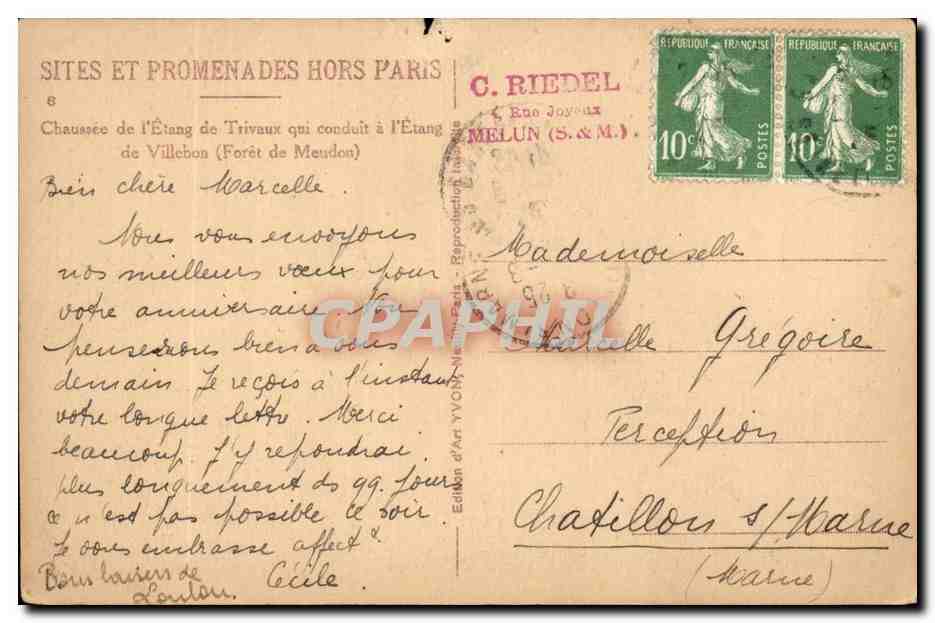 SITES ET PROMENADES HORS PARIS
8
Chaussée de l'Étang de Trivaux qui conduit à l'Étang
de Villebon (Forêt de Meudon)
Bien chère Marcelle.
Nous vous envoyons
nos meilleurs vœux pour
votre anniversaire. Nous
penserons bien à vous
demain. Je reçois à l'instant
votre longue lettre. Merci
beaucoup. J'y repondrai
plus longuement ds qq. jours
ce n'est pas possible ce soir.
Je vous embrasse affectt
Cécile.
Bons baisers de
Loulou.
Edition d'Art YVON, Neuilly-Paris - Reproduction interdite
C. RIEDEL
Rue Joyeux
MELUN (S. & M.)
REPUBLIQUE FRANÇAISE
10c
POSTES
REPUBLIQUE FRANÇAISE
10c
POSTES
MARNE
Mademoiselle
Marcelle Grégoire
Perception
Chatillon s/Marne
(Marne)
CPAPHIL